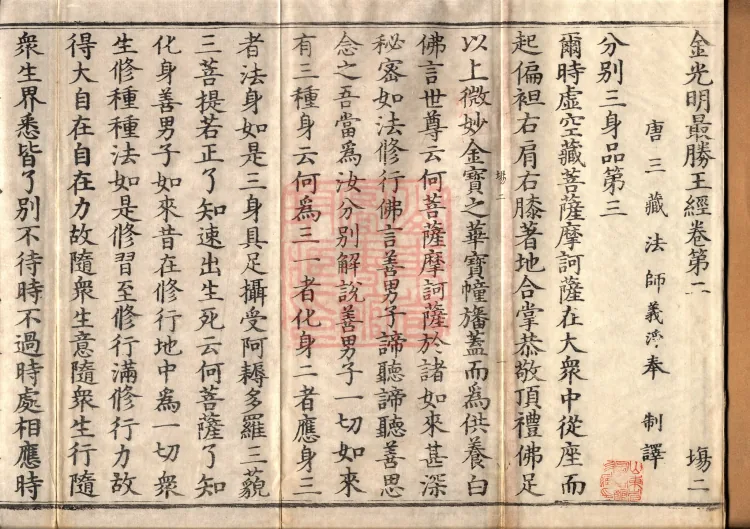 金光明最勝王經卷第二 塲二
唐三藏法師義淨奉 制譯
分别三身品第三
爾時虛空藏菩薩摩訶薩在大衆中從座而
起偏袒右肩右膝著地合掌恭敬頂禮佛足
以上微妙金寶之華寶幢旛蓋而爲供養白
塲二
佛言世尊云何菩薩摩訶薩於諸如來甚深
秘密如法修行佛言善男子諦聽諦聽善思
念之吾當爲汝分别解説善男子一切如來
有三種身云何爲三一者化身二者應身三
者法身如是三身具足攝受阿耨多羅三藐
三菩提若正了知速出生死云何菩薩了知
化身善男子如來昔在修行地中爲一切衆
生修種種法如是修習至修行滿修行力故
得大自在自在力故隨衆生意隨衆生行隨
衆生界悉皆了别不待時不過時處相應時